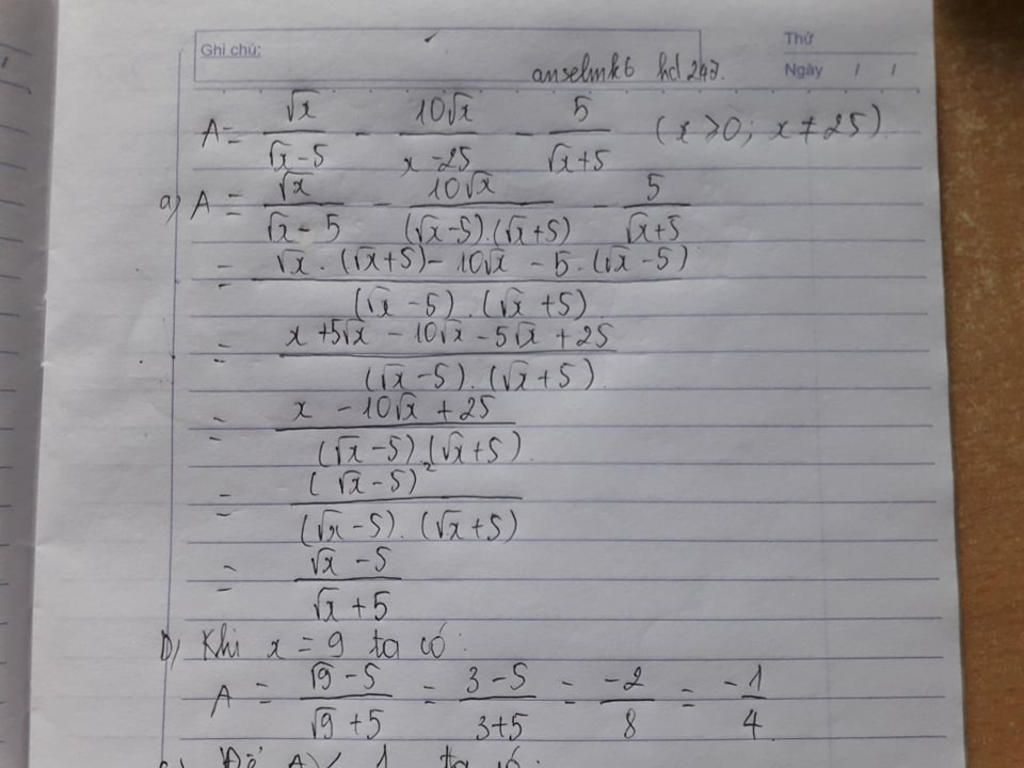 Ghi chú:
Thứ
Ngày / /
anselmk6 hd 247.
A = √x/(√x - 5) - 10√x/(x - 25) - 5/(√x + 5) (x ≥ 0; x ≠ 25)
a) A = √x/(√x - 5) - 10√x/((√x - 5).(√x + 5)) - 5/(√x + 5)
= (√x . (√x + 5) - 10√x - 5 . (√x - 5))/((√x - 5) . (√x + 5))
= (x + 5√x - 10√x - 5√x + 25)/((√x - 5) . (√x + 5))
= (x - 10√x + 25)/((√x - 5).(√x + 5))
= (√x - 5)²/((√x - 5) . (√x + 5))
= (√x - 5)/(√x + 5)
b) Khi x = 9 ta có:
A = (√9 - 5)/(√9 + 5) = (3 - 5)/(3 + 5) = -2/8 = -1/4